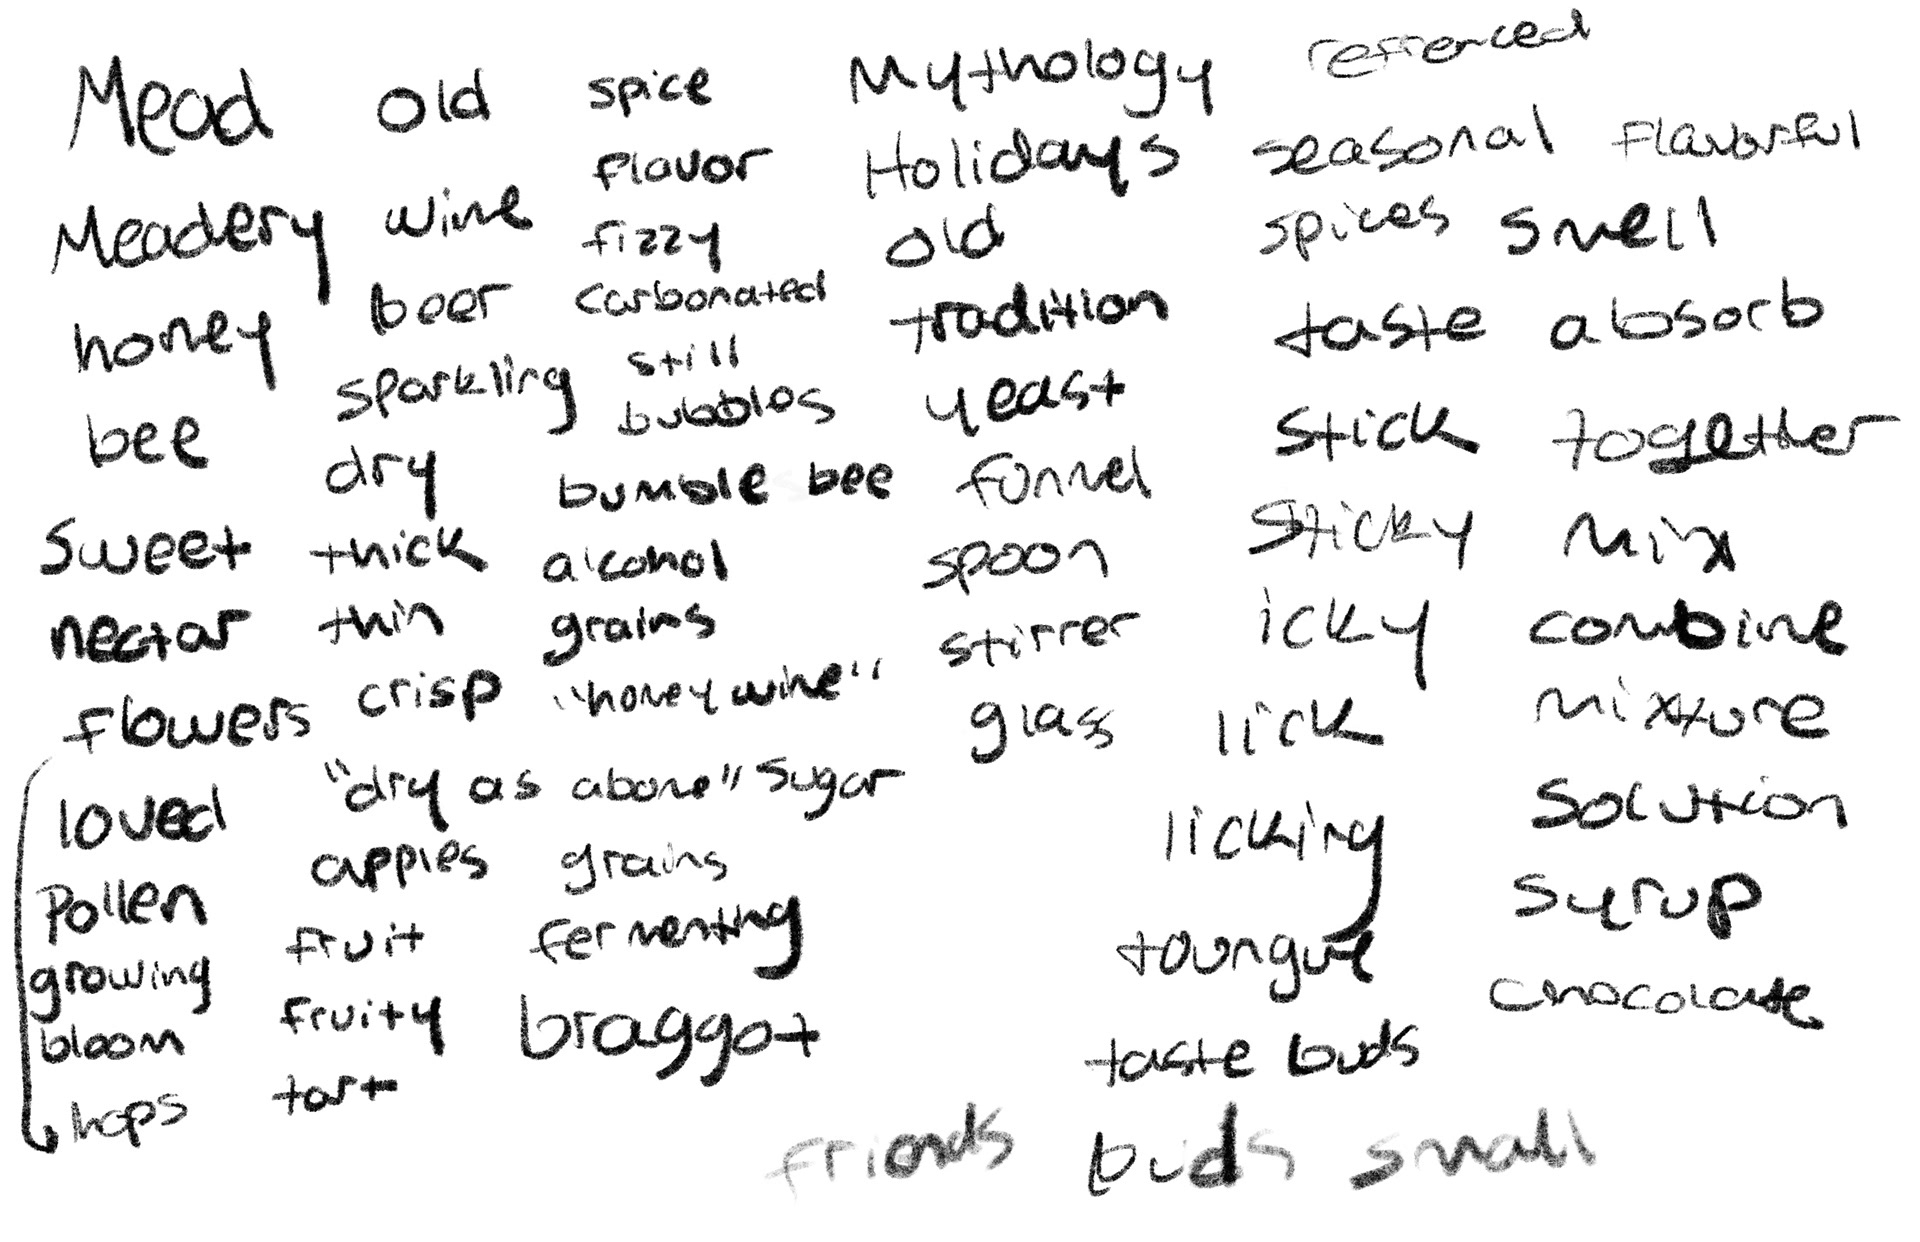 Mead
Meadery
honey
bee
Sweet
nectar
flowers
loved
Pollen
growing
bloom
hops
old
wine
beer
sparkling
dry
thick
thin
crisp
"dry as abone"
apples
fruit
fruity
tart
spice
flavor
fizzy
carbonated
still
bubbles
bumble bee
alcohol
grains
"honey wine"
Sugar
grains
fermenting
braggot
Mythology
Holidays
old
tradition
yeast
funnel
spoon
stirrer
glass
refrenced
seasonal
spices
taste
stick
sticky
icky
lick
licking
toungue
taste buds
friends buds small
flavorful
smell
absorb
together
mix
combine
mixture
Solution
Syrup
chocolate